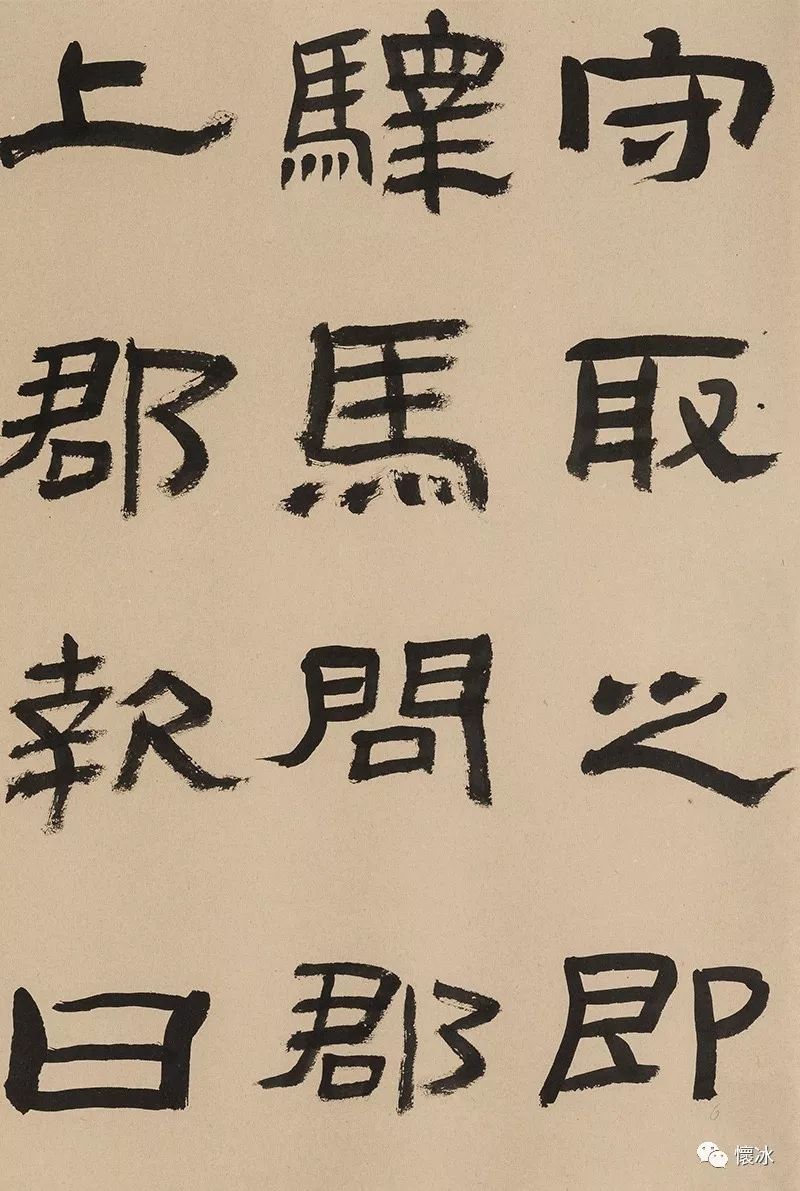 守取之即
驛馬問郡
上郡報曰
懷冰